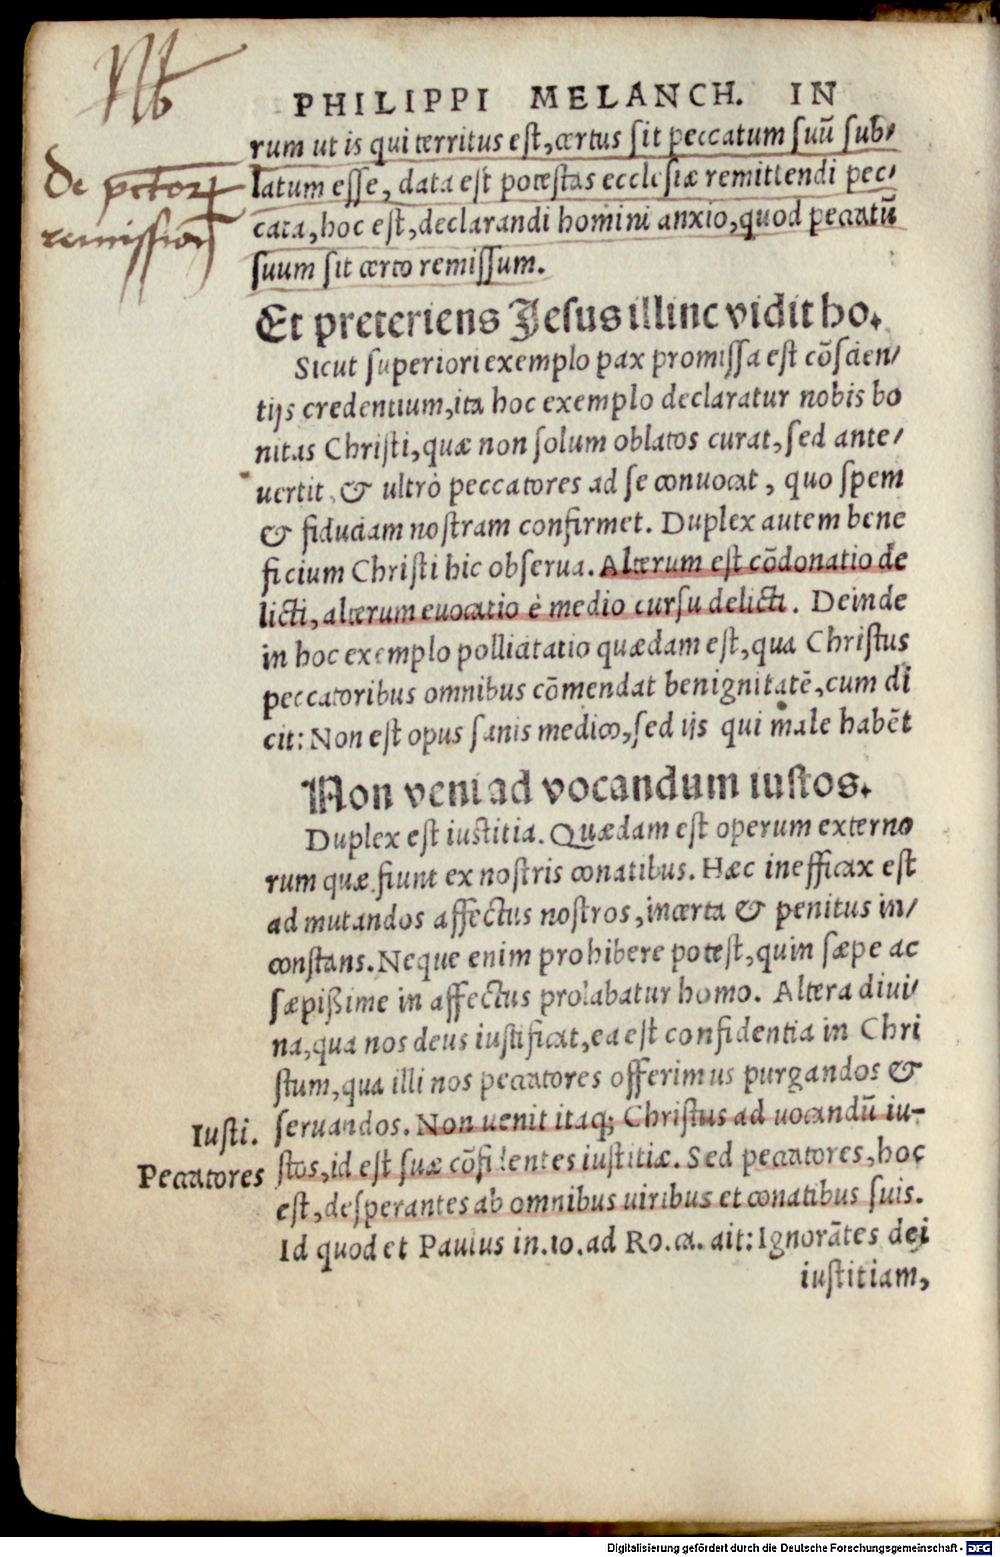 Nb
PHILIPPI MELANCH. IN
rum ut is qui territus est, certus sit peccatum suū sub-
de pctorꝝ
latum esse, data est potestas ecclesiæ remittendi pec-
remission
cata, hoc est, declarandi homini anxio, quod peccatū
suum sit certo remissum.
Et preteriens Jesus illinc vidit ho.
Sicut superiori exemplo pax promissa est cōscien/
tijs credentium, ita hoc exemplo declaratur nobis bo
nitas Christi, quæ non solum oblatos curat, sed ante/
uertit, & ultrò peccatores ad se conuocat, quo spem
& fiduciam nostram confirmet. Duplex autem bene
ficium Christi hic obserua. Alterum est cōdonatio de
licti, alterum euocatio è medio cursu delicti. Deinde
in hoc exemplo pollicitatio quædam est, qua Christus
peccatoribus omnibus cōmendat benignitatē, cum di
cit: Non est opus sanis medico, sed ijs qui male habēt
Non veni ad vocandum iustos.
Duplex est iustitia. Quædam est operum externo
rum quæ fiunt ex nostris conatibus. Hæc inefficax est
ad mutandos affectus nostros, incerta & penitus in/
constans. Neque enim prohibere potest, quin sæpe ac
sæpißime in affectus prolabatur homo. Altera diui/
na, qua nos deus iustificat, ea est confidentia in Chri
stum, qua illi nos peccatores offerimus purgandos &
seruandos. Non uenit itaq; Christus ad uocandū iu-
Iusti.
stos, id est suæ cōfidentes iustitiæ. Sed peccatores, hoc
Peccatores
est, desperantes ab omnibus uiribus et conatibus suis.
Id quod et Paulus in .10. ad Ro. ca. ait: Ignorātes dei
iustitiam,
Digitalisierung gefördert durch die Deutsche Forschungsgemeinschaft - DFG